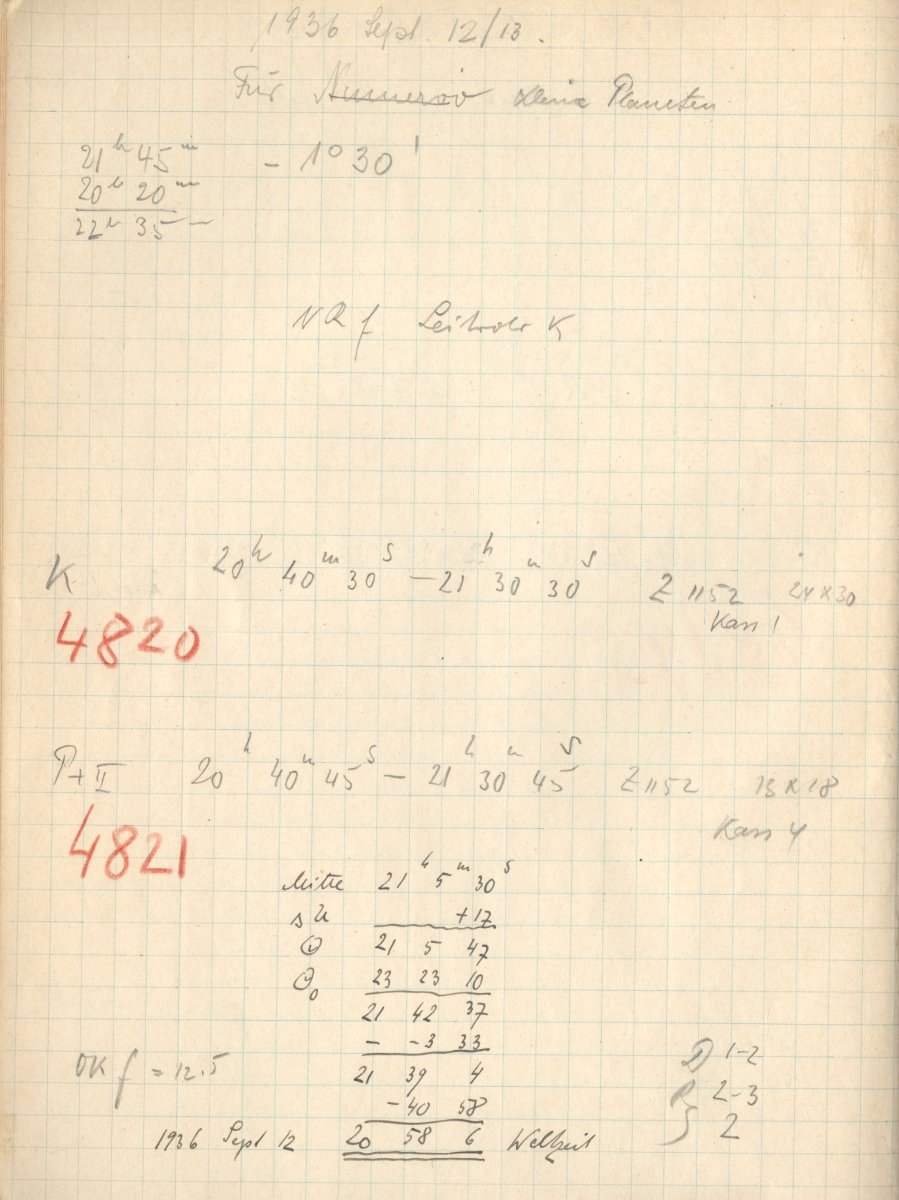 1936 Sept. 12/13.
Für Numerov kleine Planeten
21h 45m - 1° 30'
20h 20m
22h 35m
NR f Leitrohr K
K 20h 40m 30s — 21h 30m 30s Z 1152 24 x 30
Kass 1
4820
P + II 20h 40m 45s — 21h 30m 45s Z 1152 13 x 18
Kass 4
4821
Mitte 21h 5m 30s
s U +17
Θ 21 5 47
Θ0 23 23 10
21 42 37
- -3 33
OK f = 12.5 21 39 4
-40 58
1936 Sept 12 20 58 6 Weltzeit
D 1-2
R 2-3
2